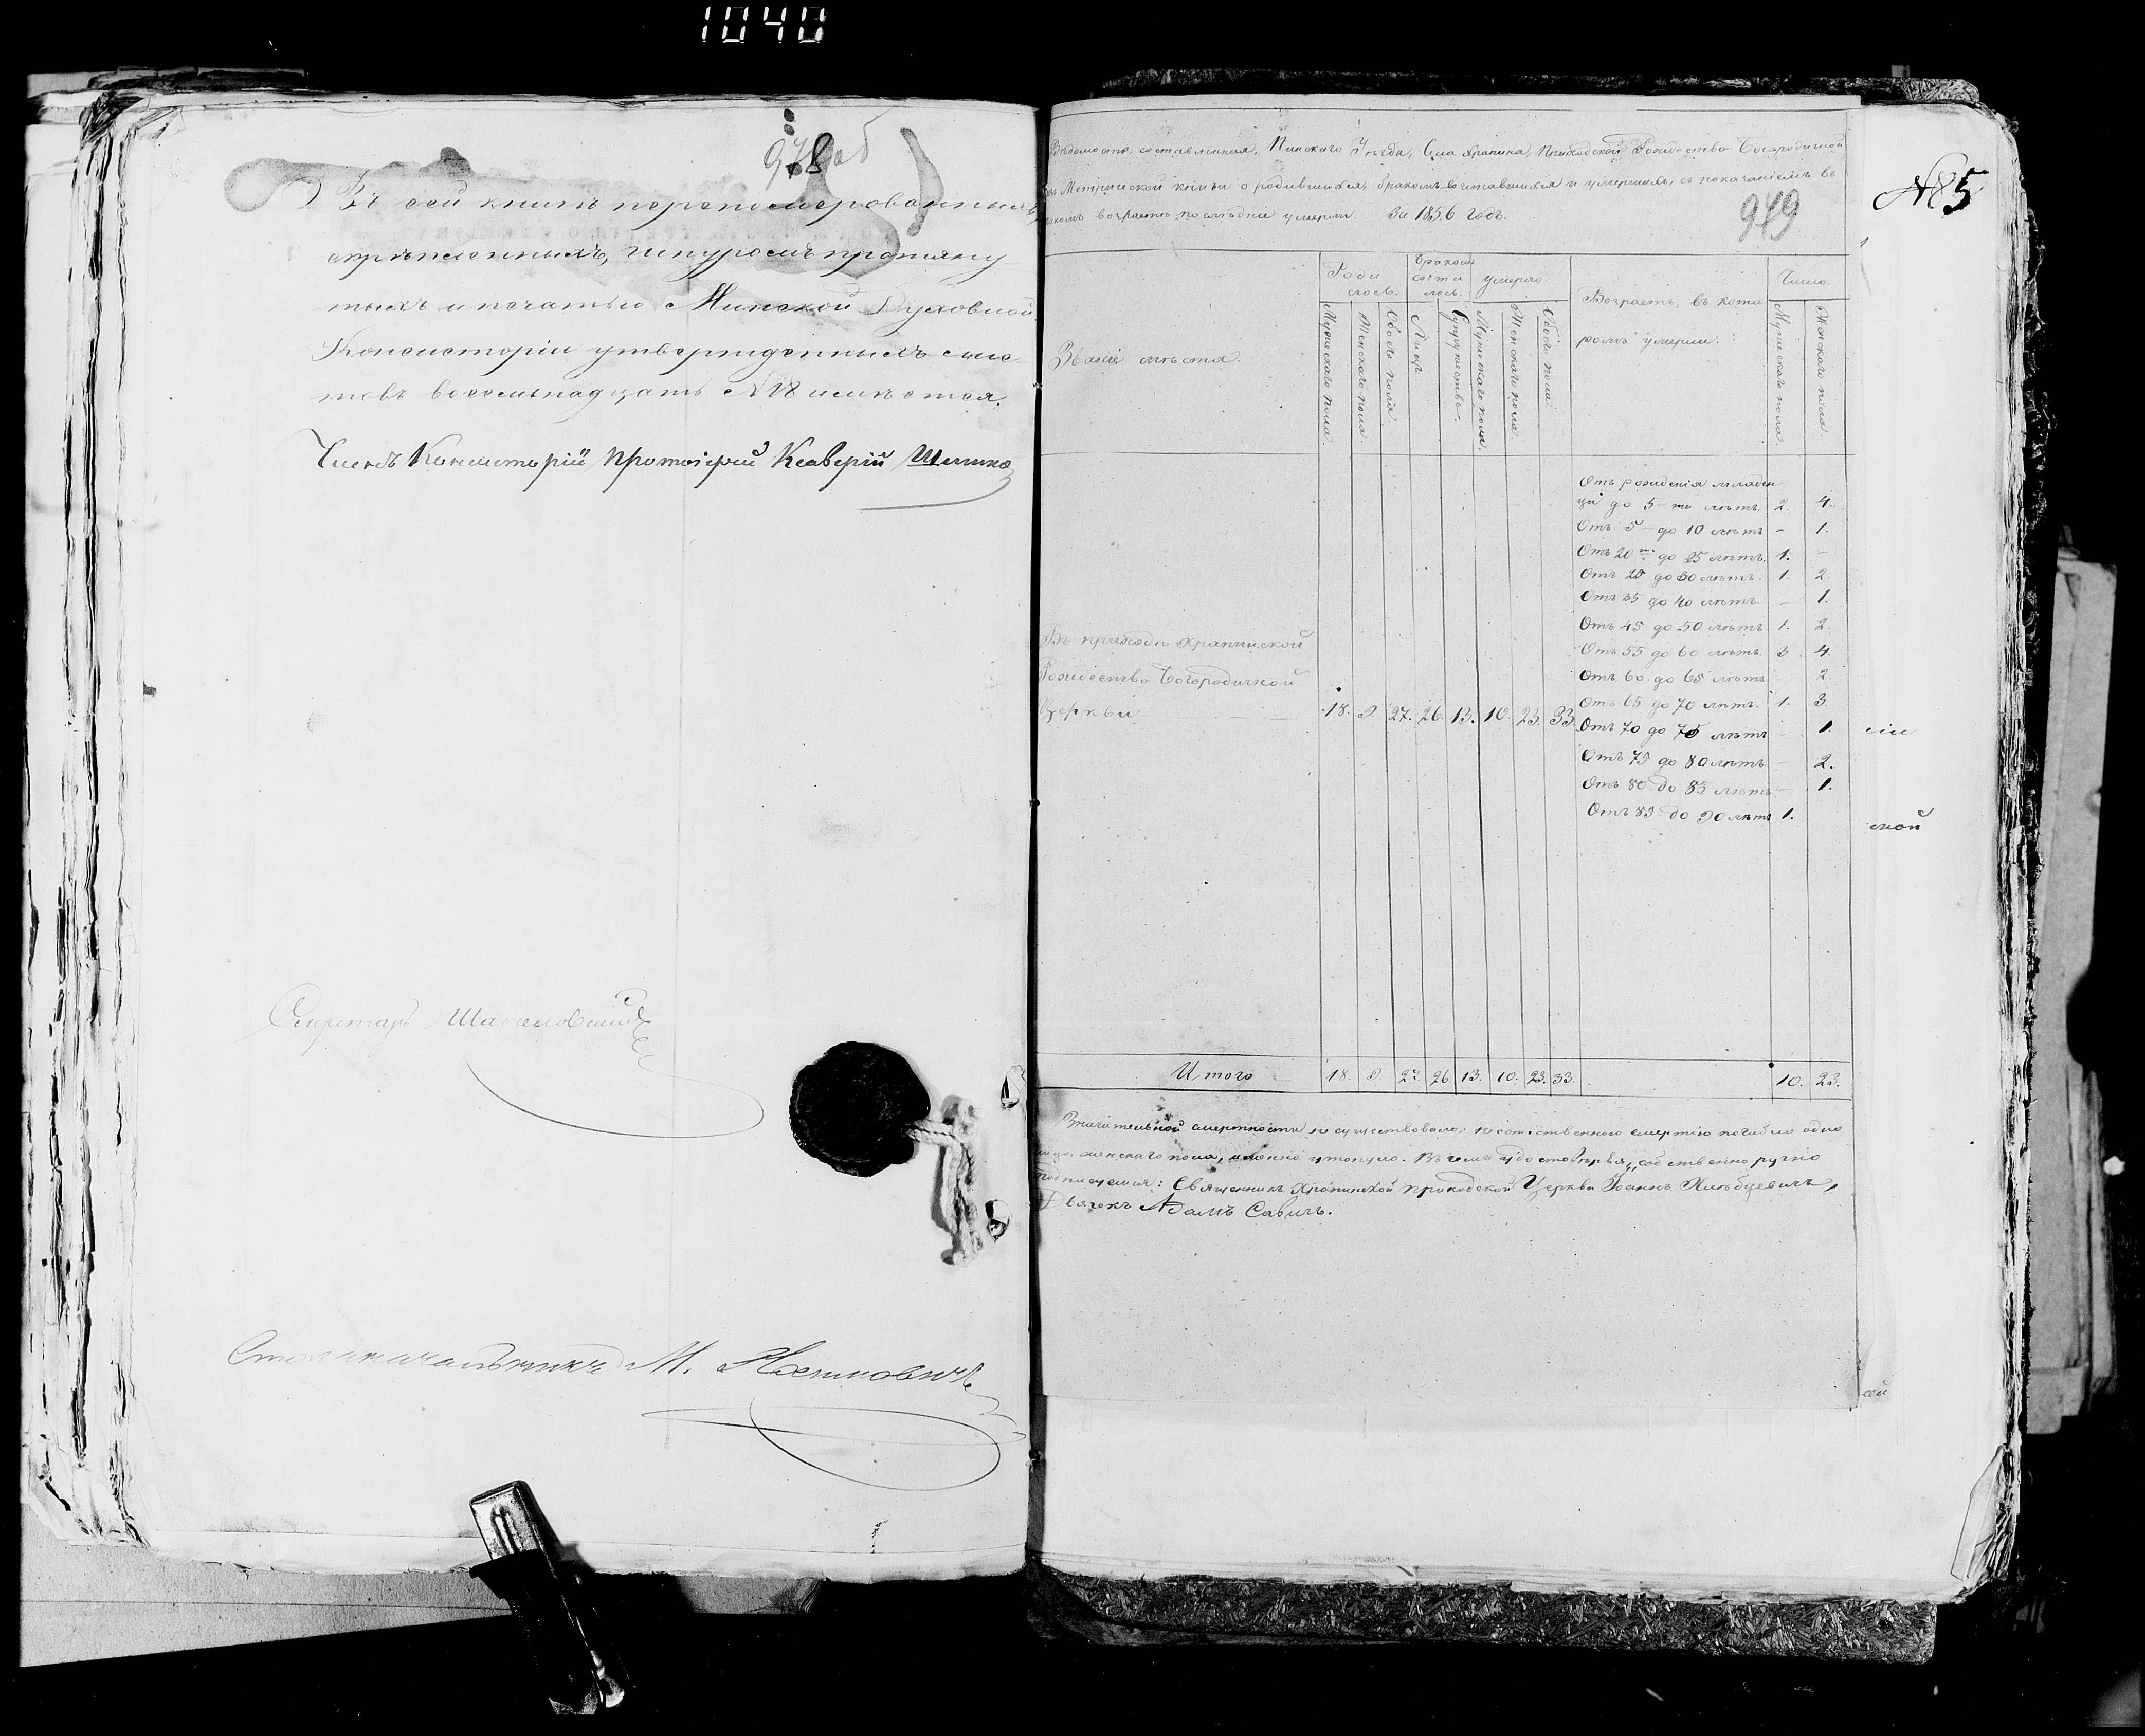 1040
978 об
Въ сей книгѣ перенумерованныхъ,
скрѣпленныхъ, шнуромъ протяну
тыхъ и печатью Минской Духовной
Консисторіи утвержденныхъ лис-
товъ восемьнадцать № 18 имѣется.
Членъ Консисторіи Протоіерей Ксаверій
Секретарь
Столоначальникъ М.
№85
949
Вѣдомость, составленная, Пинскаго Уѣзда, Села Храпина, Приходской Рождество Богородичной
Метрической книги о родившихся, бракомъ сочетавшихся и умершихъ, съ показаніемъ въ
какомъ возрастѣ послѣдніе умерли. За 1856 годъ.
Званіе мѣста.
Роди
лось.
Бракомъ
сочета
лось.
умерло.
Возрастъ, въ кото
ромъ умерли.
Число.
Мужескаго пола.
Женскаго пола.
Обоего пола.
Лицъ.
Супружествъ.
Мужескаго пола.
Женскаго пола.
Обоего пола.
Мужескаго пола.
Женскаго пола.
Въ приходѣ Храпинской
Рождество Богородичной
Церкви
18. 9. 27. 26. 13. 10. 23. 33.
Отъ рожденія младен
ца до 5-ти лѣтъ. 2. 4.
Отъ 5 до 10 лѣтъ - 1.
Отъ 20ти до 25 лѣтъ. 1. -
Отъ 25 до 30 лѣтъ. 1. 2.
Отъ 35 до 40 лѣтъ. - 1.
Отъ 45 до 50 лѣтъ 1. 2.
Отъ 55 до 60 лѣтъ. 3. 4.
Отъ 60 до 65 лѣтъ - 2.
Отъ 65 до 70 лѣтъ. 1. 3.
Отъ 70 до 75 лѣтъ - 1.
Отъ 75 до 80 лѣтъ. - 2.
Отъ 80 до 85 лѣтъ - 1.
Отъ 85 до 90 лѣтъ 1.
Итого 18. 9. 27. 26. 13. 10. 23. 33. 10. 23.
Значительной смертности не существовало; неестественною смертію погибло одно
лицо, женскаго пола, именно утонуло. Въ чемъ удостовѣряя, собственноручно
подписуемся: Священникъ Храпинской приходской Церкви Іоаннъ Хлѣбцевичъ,
Дьячекъ Адамъ Савичъ.
ской